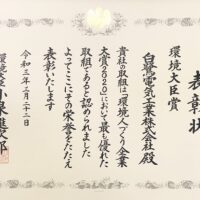 表彰状
環境大臣賞
白鷺電気工業株式会社殿
貴社の取組は「環境人づくり企業
大賞2020」において最も優れた
取組であると認められました
よってここにその栄誉をたたえ
表彰いたします
令和三年二月二十二日
環境大臣 小泉進次郎